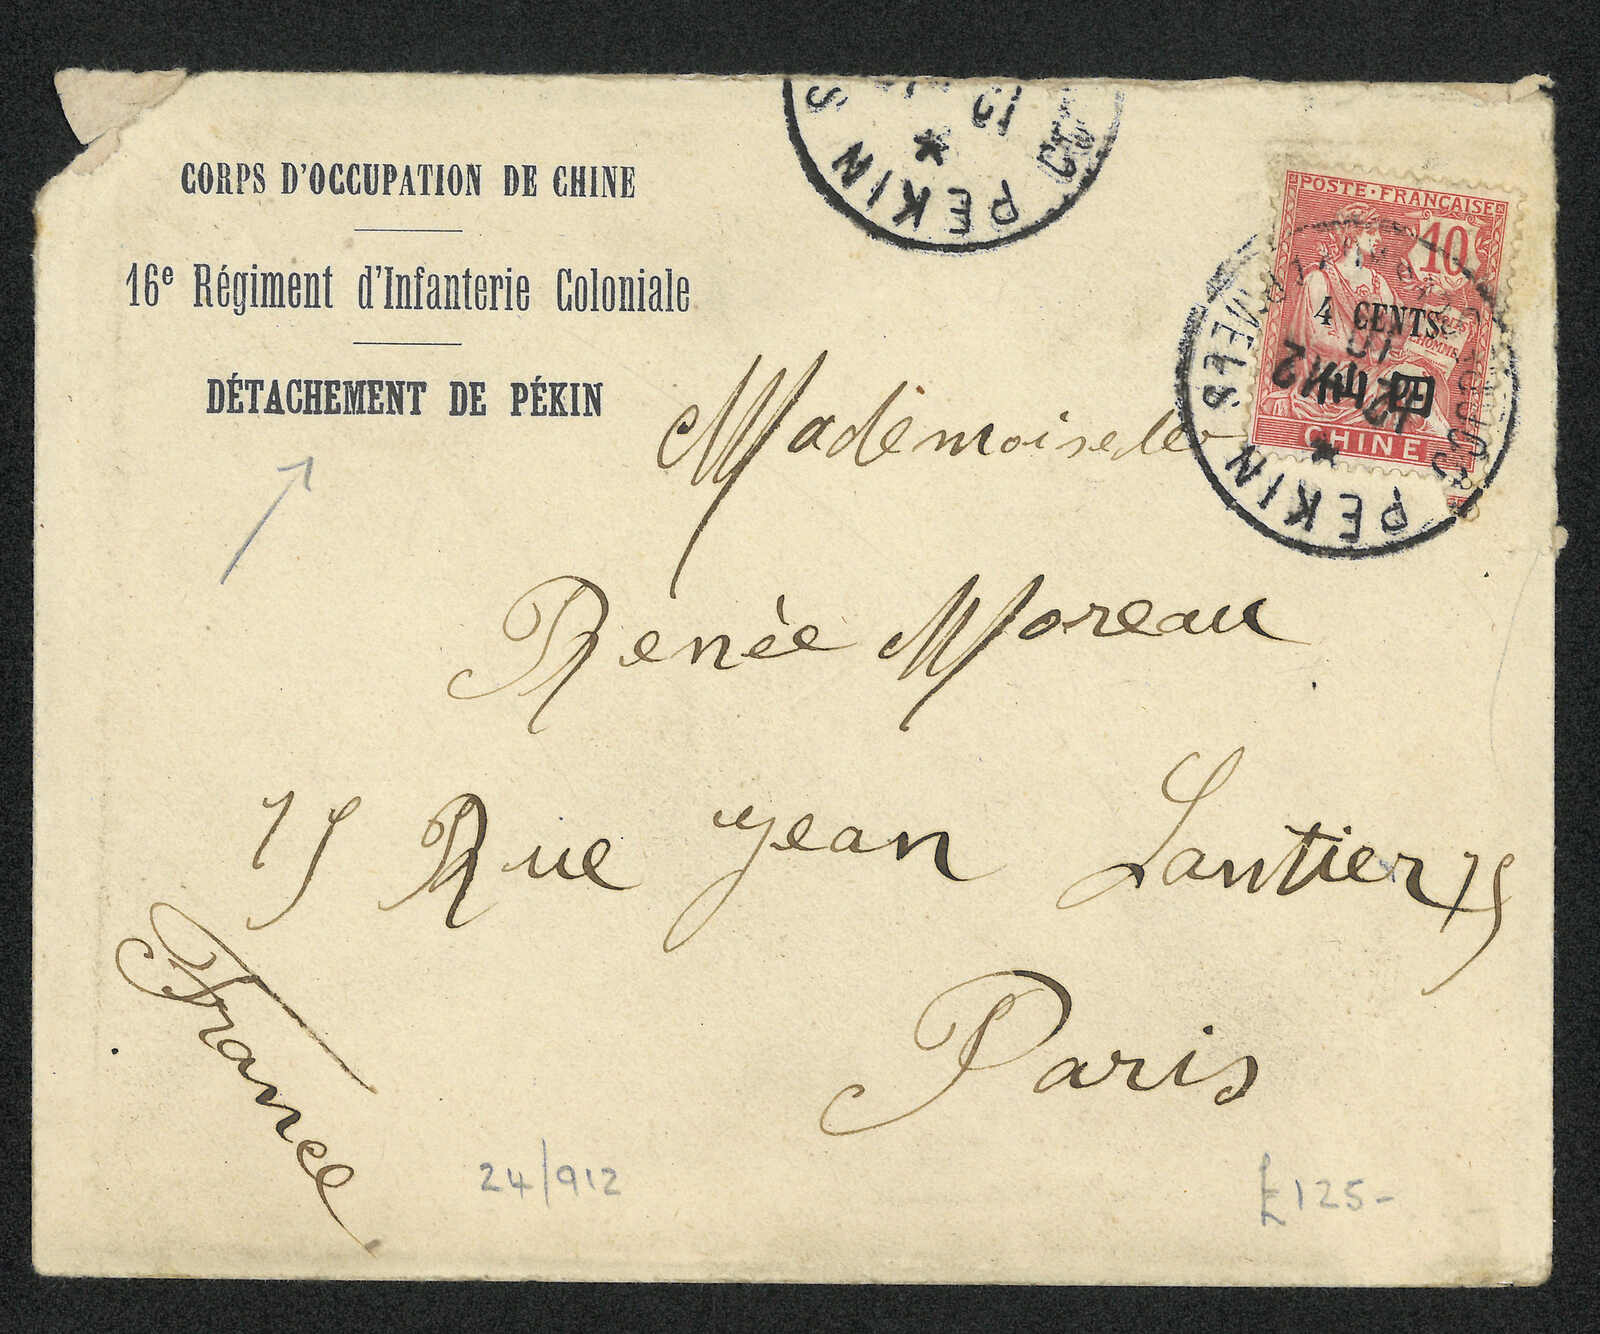 CORPS D'OCCUPATION DE CHINE
16e Régiment d'Infanterie Coloniale
DÉTACHEMENT DE PÉKIN
PEKIN
POSTE·FRANÇAISE
10
4 CENTS
分四
CHINE
PEKIN
Mademoiselle
Renée Moreau
75 Rue Jean Lantier 75
Paris
France
24/912
£125-